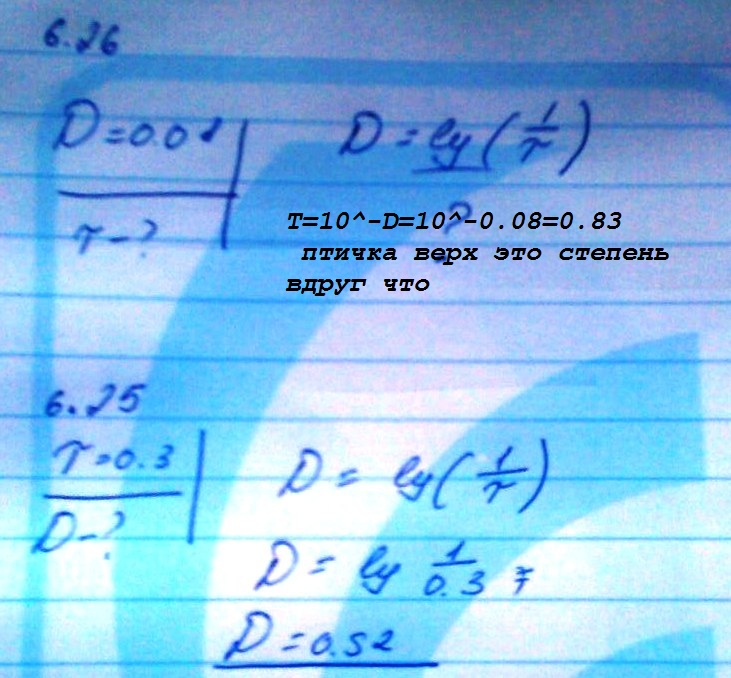 6.26
D = 0.08
τ - ?
D = lg (1/τ)
?
T=10^-D=10^-0.08=0.83
птичка верх это степень
вдруг что
6.25
τ = 0.3
D - ?
D = lg (1/τ)
D = lg 1/0.3 =
D = 0.52